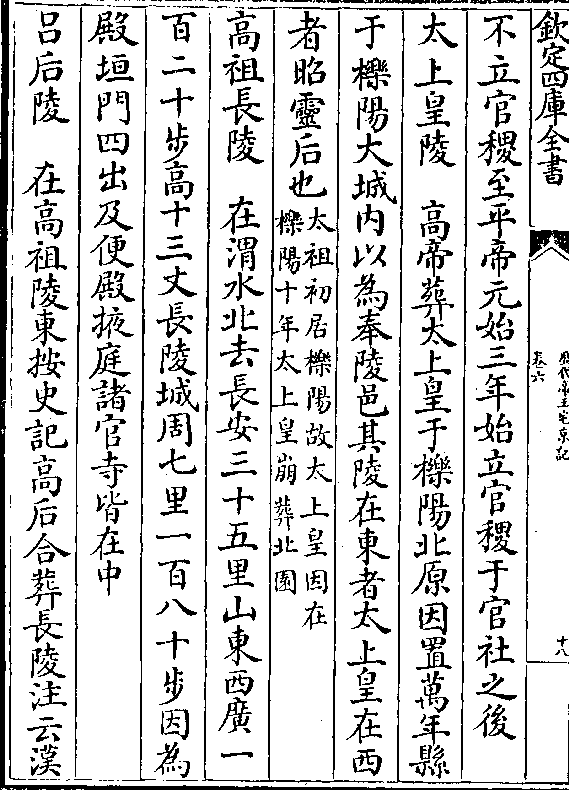 欽定四庫全書
歷代帝王宅京記
卷六
十八
不立官稷至平帝元始三年始立官稷于官社之後
太上皇陵　高帝葬太上皇于櫟陽北原因置萬年縣
于櫟陽大城内以為奉陵邑其陵在東者太上皇在西
者昭靈后也太祖初居櫟陽故太上皇因在
櫟陽十年太上皇崩葬北園
高祖長陵　在渭水北去長安三十五里山東西廣一
百二十步高十三丈長陵城周七里一百八十步因為
殿垣門四出及便殿掖庭諸官寺皆在中
吕后陵　在高祖陵東按史記高后合葬長陵注云漢